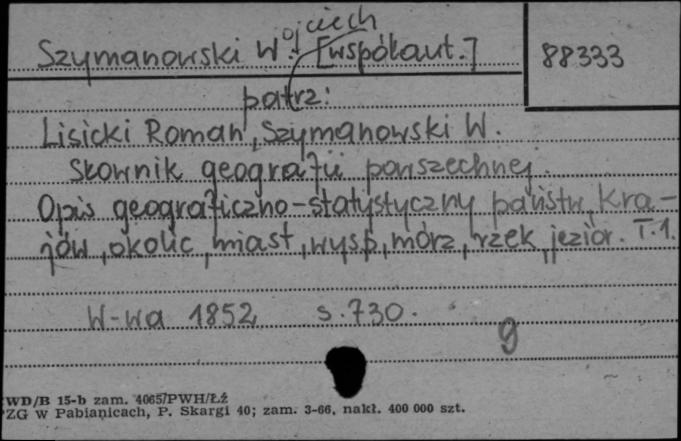 Szymanowski Wojciech [współaut.]
88333
patrz:
Lisicki Roman, Szymanowski W.
Słownik geografii powszechnej.
Opis geograficzno-statystyczny państw, kra-
jów, okolic, miast, wysp, mórz, rzek, jezior. T.1.
W-wa 1852 s.730.
g
WD/B 15-b zam. 4065/PWH/Łź
PZG w Pabianicach, P. Skargi 40; zam. 3-66, nakł. 400 000 szt.